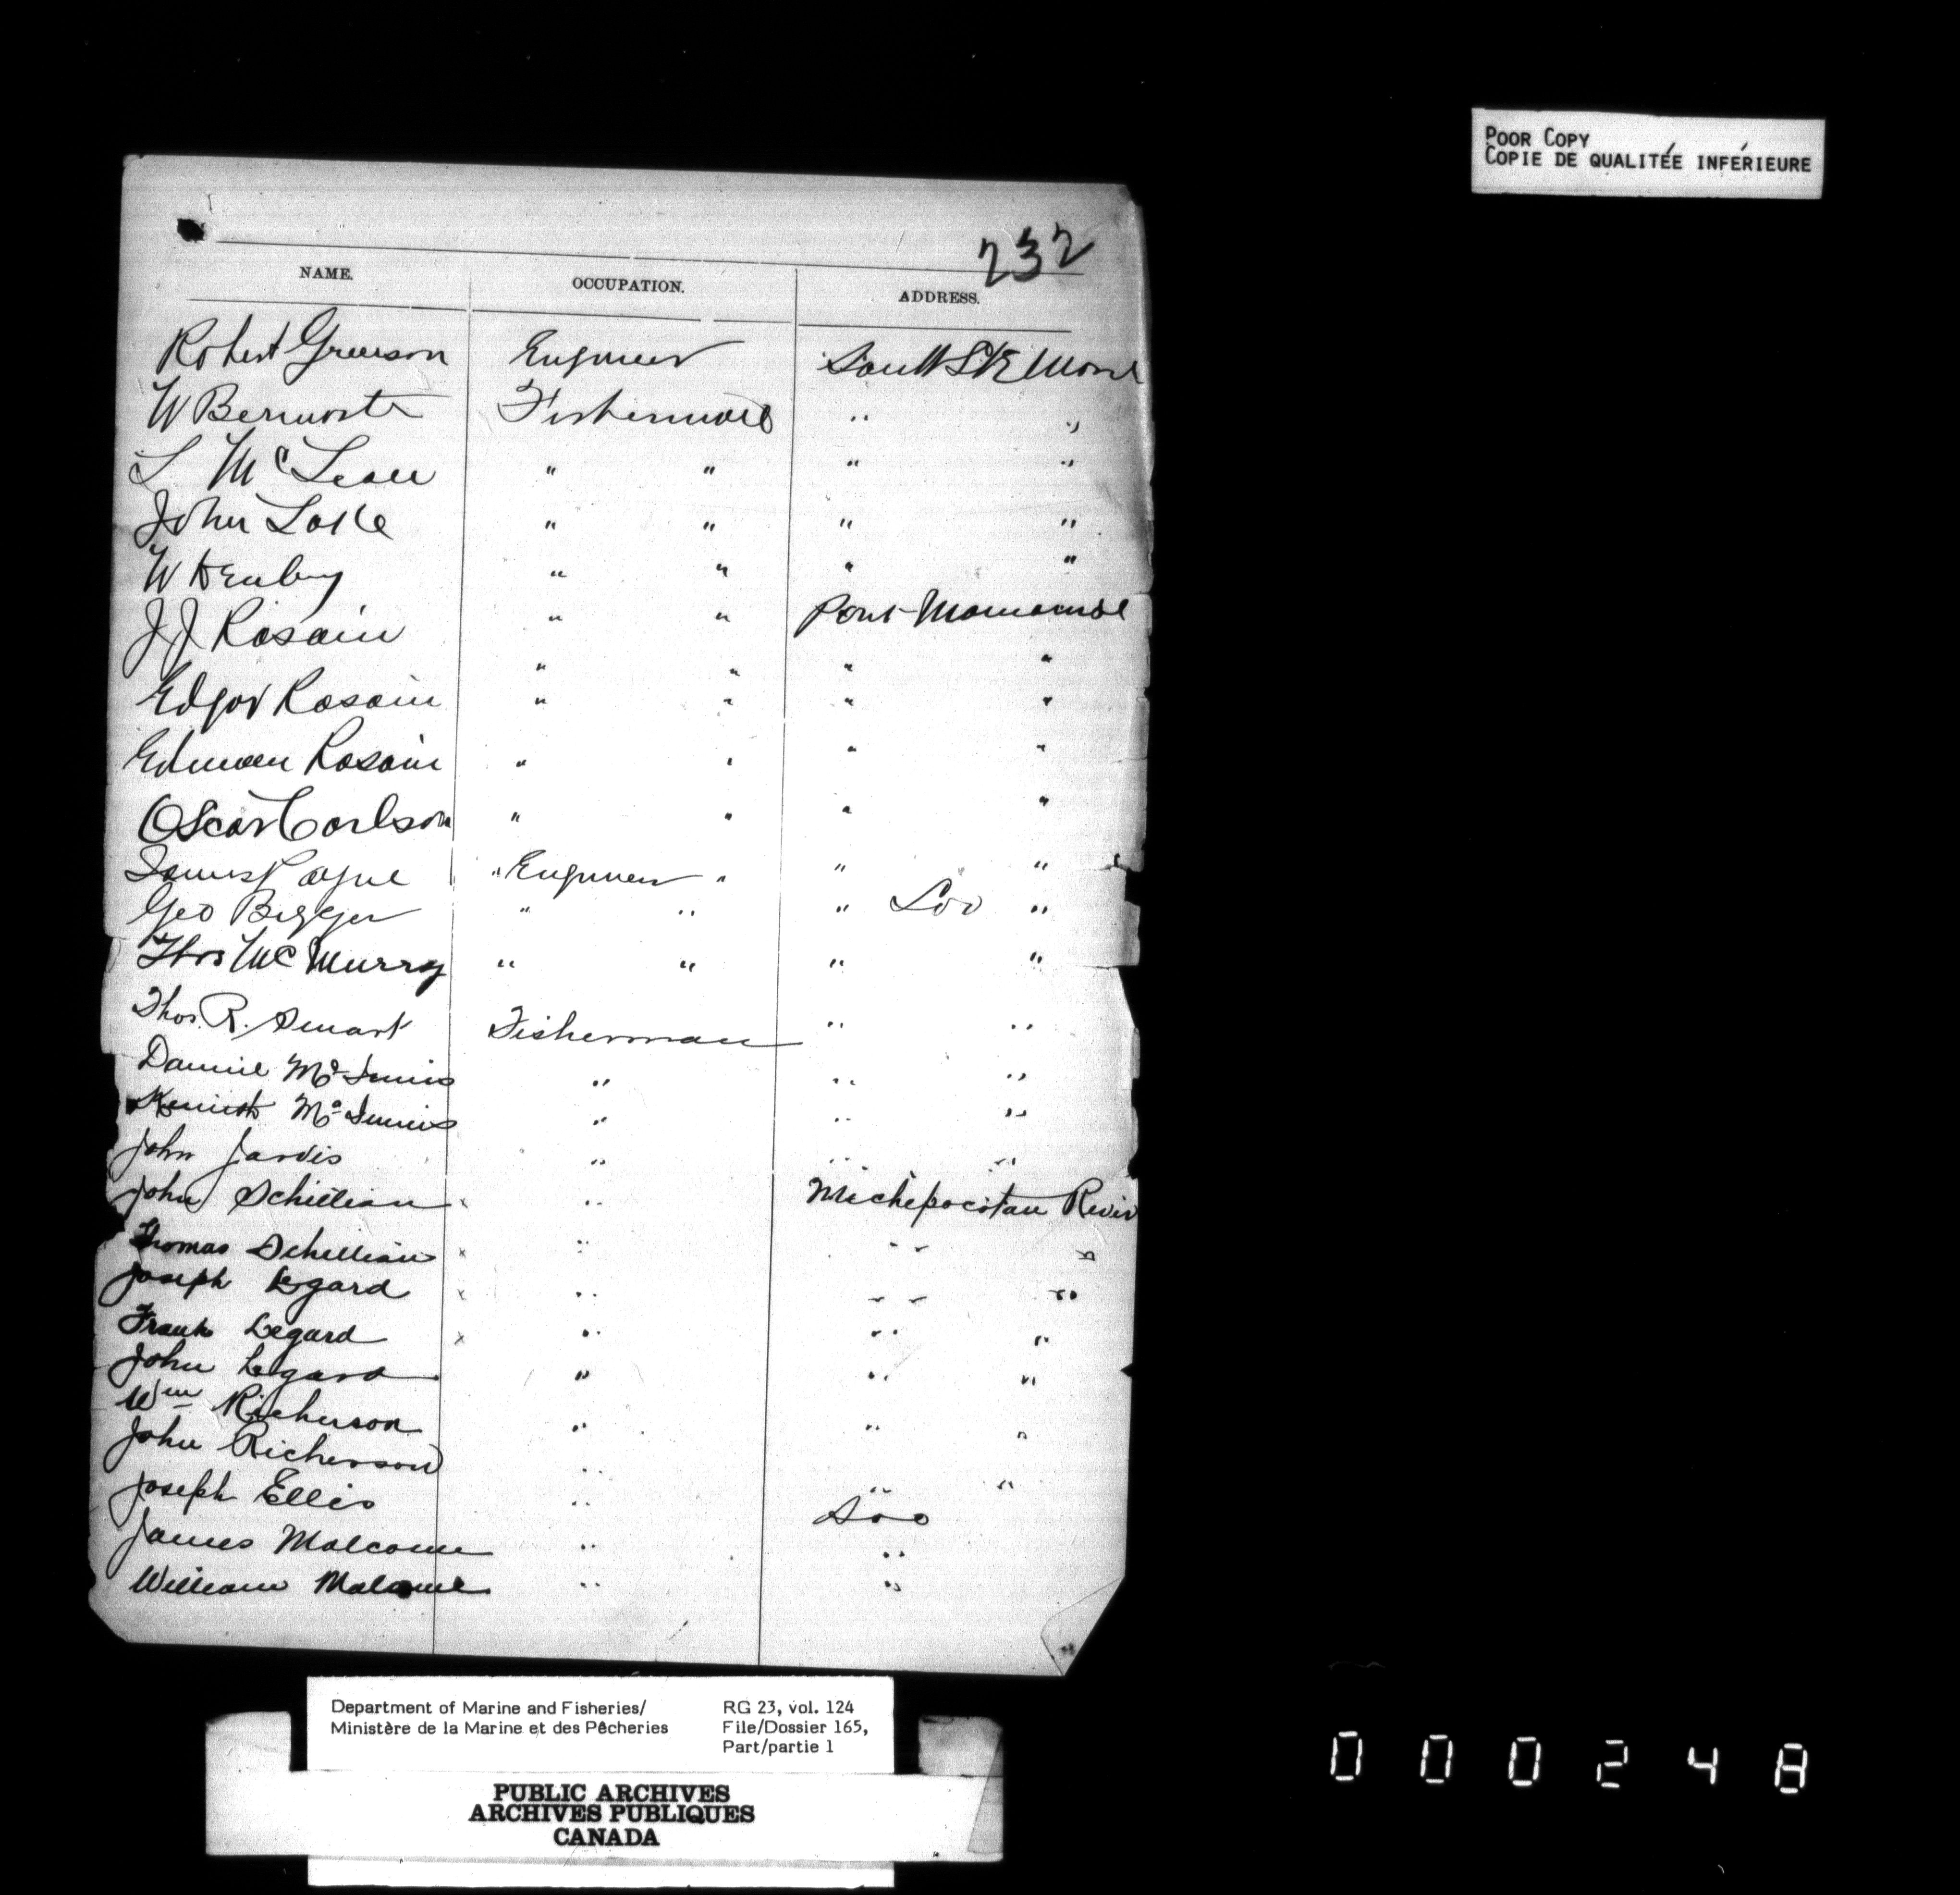 POOR COPY
COPIE DE QUALITÉE INFÉRIEURE
232
NAME. OCCUPATION. ADDRESS.
Robert Grierson Engineer Sault Ste Marie
W Fishermen " "
L McLean " " " "
John Lake " " " "
W " " " "
J J Rosain " " Port
" " " "
Edgar Rosain " " " "
Rosain " " " "
Oscar Carlson " " " "
James Payne " Engineer " " "
Geo Bigger " " " Soo "
Thos McMurry " " " "
Thos. R. Smart Fisherman " "
Dannie McInnis " " "
McInnis " " "
John Jarvis " " "
John x " Michepocotan River
Thomas x " " "
Joseph Legard x " " "
Frank Legard x " " "
John Legard " " "
Wm Richerson " " "
John Richerson " " "
Joseph Ellis " Soo
James Malcome " "
William " "
Department of Marine and Fisheries/
Ministère de la Marine et des Pêcheries
RG 23, vol. 124
File/Dossier 165,
Part/partie 1
PUBLIC ARCHIVES
ARCHIVES PUBLIQUES
CANADA
000248